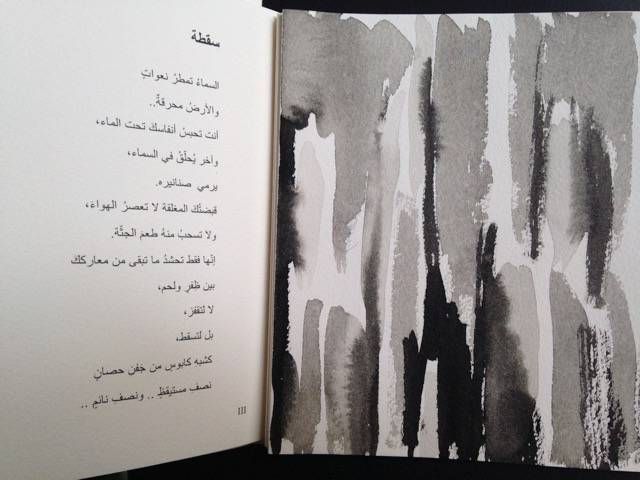 سقطة
السماءُ تمطرُ نعواتٍ
والأرضُ محرقةٌ..
أنت تحبسُ أنفاسكَ تحت الماء،
وآخر يُحلّقُ في السماء،
يرمي صنانيره.
قبضتُك المغلقة لا تعصرُ الهواءَ،
ولا تسحبُ منهُ طعمَ الجثَّة.
إنّها فقط تحشدُ ما تبقى من معاركك
بين ظِفرٍ ولحم،
لا لتقفز،
بل لتسقط،
كشبهِ كابوسٍ من جَفنِ حصانٍ
نصفِ مستيقظٍ .. ونصفِ نائمٍ ..
III